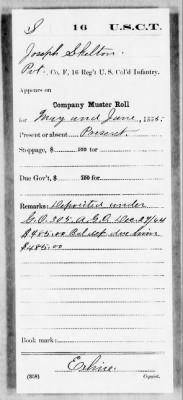 S 16 U.S.C.T.
Joseph Skelton
Pvt., Co. F, 16 Reg't U. S. Col'd Infantry.
Appears on
Company Muster Roll
for May and June, 1865.
Present or absent Present
Stoppage, $ 100 for
Due Gov't, $ 100 for
Remarks: Deposited under
G.O. 305 A.G.O. Dec 27/64
$485.00 Bal of due him
$485.00
Book mark:
(358) Copyist.